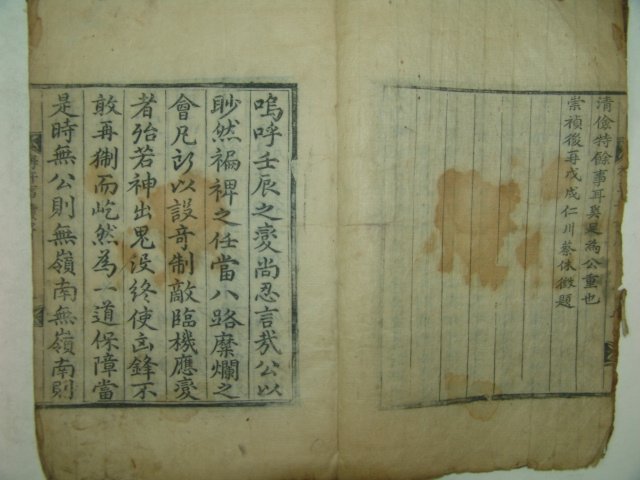 清儉特餘事耳奚足為公重也
崇禎後再戊戌仁川蔡休徵題
嗚呼壬辰之變尚忍言哉公以
眇然褊裨之任當八路糜爛之
會凡所以設奇制敵臨機應變
者殆若神出鬼沒終使凶鋒不
敢再猘而屹然為一道保障當
是時無公則無嶺南無嶺南則